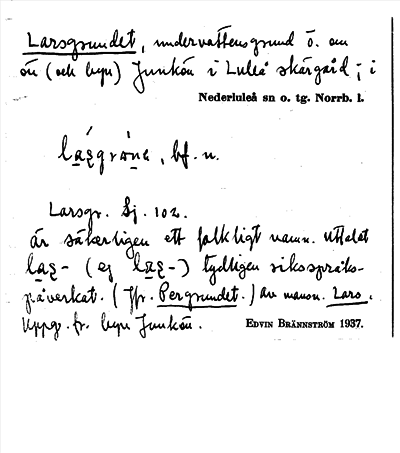 Larsgrundet, undervattensgrund ö. om
ön (och byn) Junkön i Luleå skärgård; i
Nederluleå sn o. tg. Norrb. l.
bf. n.
Larsgr. Sj. 102.
är säkerligen ett folkligt namn. Uttalet
(ej tydligen riksspråks-
påverkat. (Jfr. Pergrundet.) Av mansn. Lars.
Uppg. fr. byn Junkön.
EDVIN BRÄNNSTRÖM 1937.